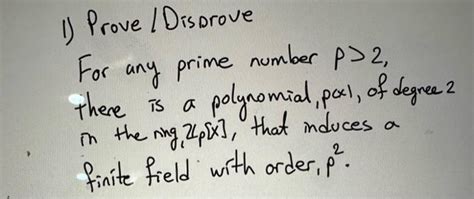 1) Prove / Disprove
For any prime number p>2,
there is a polynomial, p(x), of degree 2
in the ring, ℤp[x], that induces a
finite field with order, p².